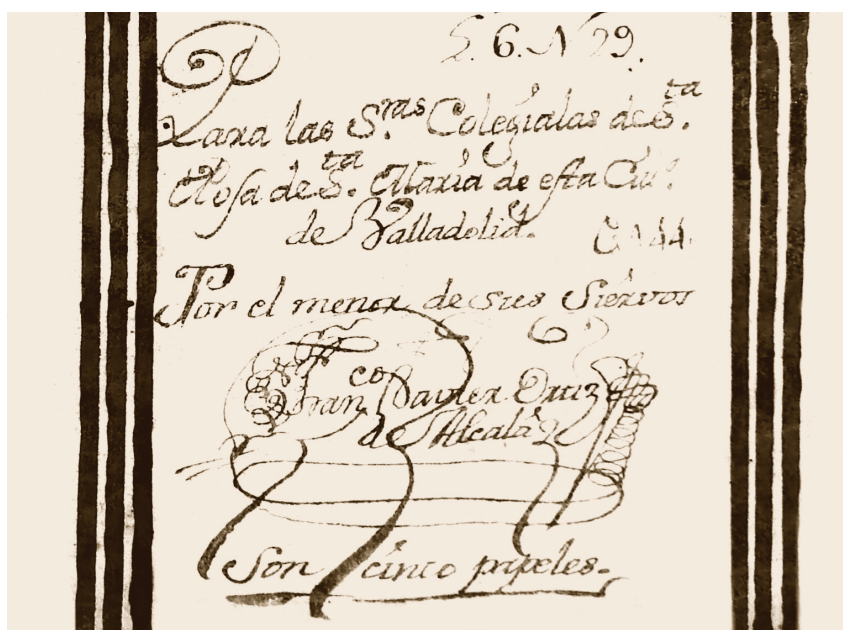 L. 6. N 29.
Para las S.ras Colegialas de S.ta
Rosa de S.ta Maria de esta Ciu.d
de Valladolid.
Por el menor de sus Siervos
Fran.co Xavier Ortiz
de Alcalá
Son cinco papeles.